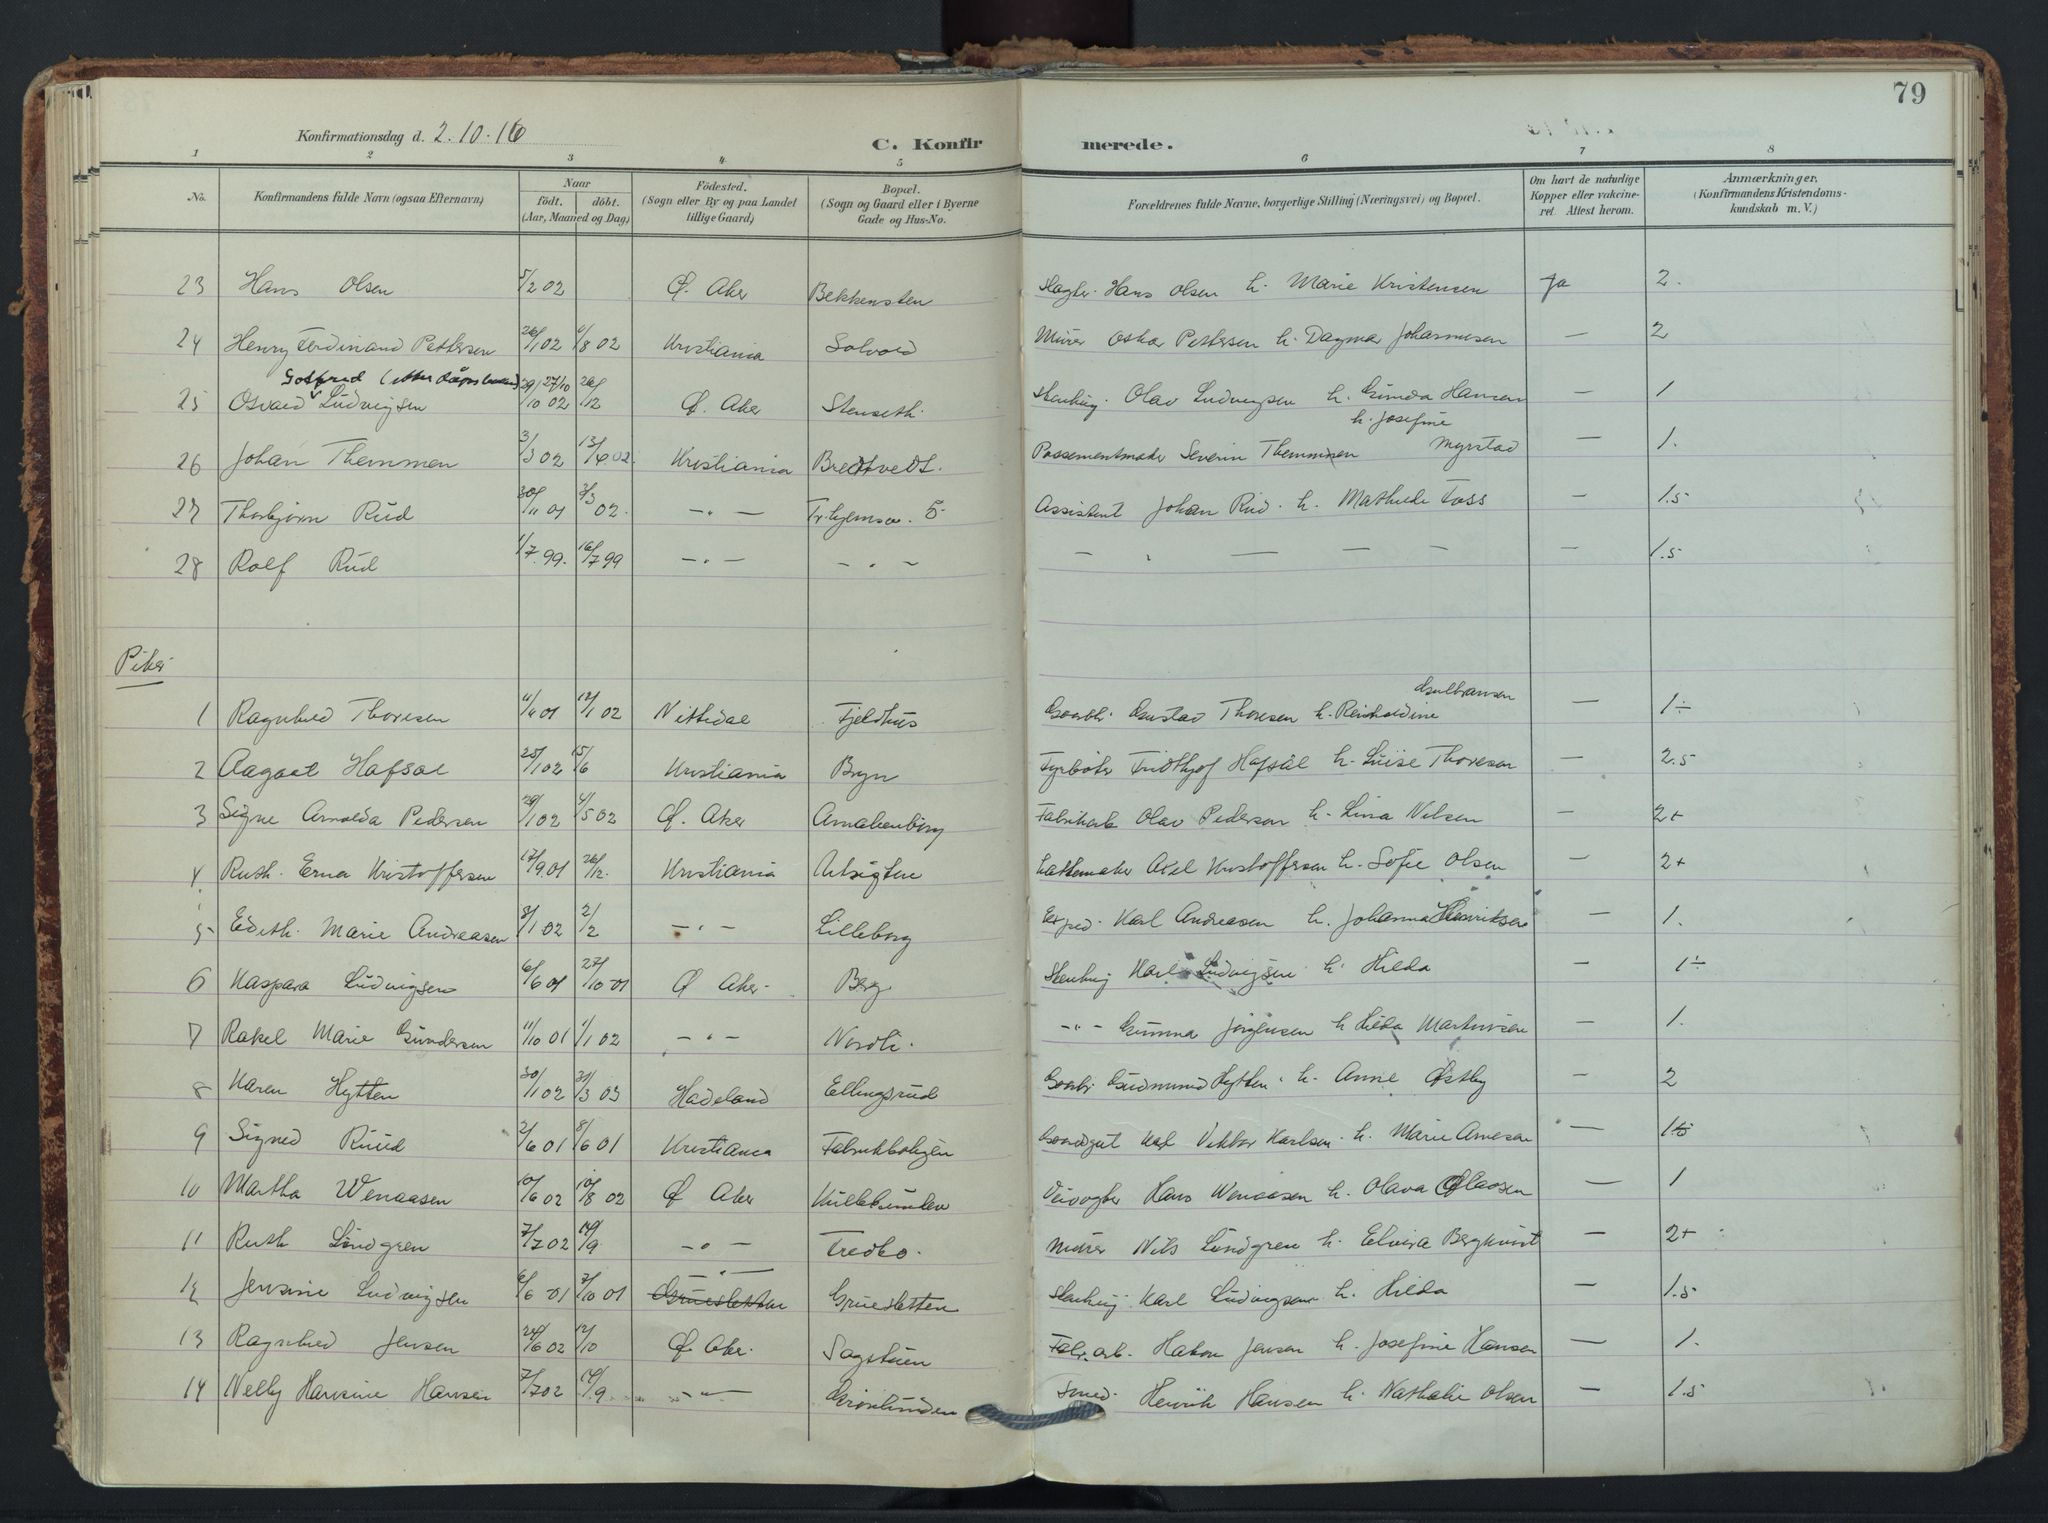 79
Konfirmationsdag d. 2.10.16
C. Konfirmerede.
1 2 3 4 5 6 7 8
No. Konfirmandens fulde Navn (ogsaa Efternavn) Naar født. døbt. (Aar, Maaned og Dag) Fødested. (Sogn eller By og paa Landet tillige Gaard) Bopæl. (Sogn og Gaard eller i Byerne Gade og Hus-No. Forældrenes fulde Navne, borgerlige Stilling (Næringsvei) og Bopæl. Om havt de naturlige Kopper eller vakcineret. Attest herom. Anmærkninger. (Konfirmandens Kristendomskundskab m. V.)
23 Hans Olsen 5/2 02 Ø. Aker Bekkensten Slagter. Hans Olsen h. Marie Kristensen Ja 2.
24 Henry Ferdinand Pettersen 26/1 02 6/8 02 Kristiania Solvold Murer Oskar Pettersen h. Dagmar Johannesen — 2
Gotfred
25 Osvald Ludvigsen 29/10 02 26/12 Ø. Aker Stenseth. Stenhug. Olav Ludvigsen h. Gunda Hansen — 1
h. Josefine
26 Johan Themmen 3/3 02 13/6 02. Kristiania Bredtvedt. Possementmaker Severin Themmen Myrstad — 1.
27 Thorbjørn Rud 30/11 01 3/3 02. —"— Tr.hjemsv. 5 Assistent Johan Rud. h. Mathilde Foss — 1.5
28 Rolf Rud 1/7 99. 16/7 99 —"— —"— — " — — — — 1.5
Piker
Gulbransen
1 Ragnhild Thoresen 11/11 01 12/1 02 Nittedal Fjeldhus Gaardbr. Gustav Thoresen h. Reinholdine — 1÷
2 Aagoat Hafsal 25/1 02 15/6 Kristiania Bryn Fyrbøter Fridthjof Hafsål h. Luise Thoresen — 2.5
3 Signe Arnolda Pedersen 29/1 02 4/5 02 Ø. Aker Amalienborg Fabrikarb Olav Pedersen h. Lina Nilsen — 2+
4 Ruth. Erna Kristoffersen 17/9 01 26/12. Kristiania Utsigten Lattemaker Axel Kristoffersen h. Sofie Olsen — 2+
5 Edith. Marie Andreasen 8/1 02 2/2 —"— Lilleborg Exped. Karl Andreasen h. Johanna Henriksen — 1.
6 Kaspara Ludvigsen 6/6 01 27/10 01 Ø Aker Berg Stenhug Karl Ludvigsen h. Hilda — 1÷
7 Rakel Marie Gundersen 11/10 01 1/1 02 —"— Nordli. —"— Gunna Jørgensen h Hilda Martinsen — 1.
8 Karen Hytten 30/1 02 31/3 03 Hadeland Ellingsrud Gaardbr Gudmund Hytten h. Anne Østby — 2
9 Signed Ruud 2/6 01 8/6 01 Kristiania Fabrikboligen Gaardsgut Karl Viktor Karlsen h. Marie Arnesen — 1.5
10 Martha Wenaasen 10/6 02 10/8 02 Ø Aker Veivogter Hans Wenaasen h. Olava Olaosen — 1
11 Ruth Lindgren 7/7 02 14/9 —"— Fredbo. Murer Nils Lindgren h. Elvira Bergkvist — 2+
12 Jensine Ludvigsen 6/6 01 7/10 01 —"— Gruesletten Gruesletten Stenhug Karl Ludvigsen h. Hilda — 1.5
13 Ragnhild Jensen 24/6 02 12/10 Ø Aker. Sagstuen Fabr.arb. Hakon Jensen h. Josefine Hansen — 1.
14 Nelly Hansine Hansen 7/7 02 14/9 —"— Grønlunden Smed. Henrik Hansen h. Nathalie Olsen — 1.5